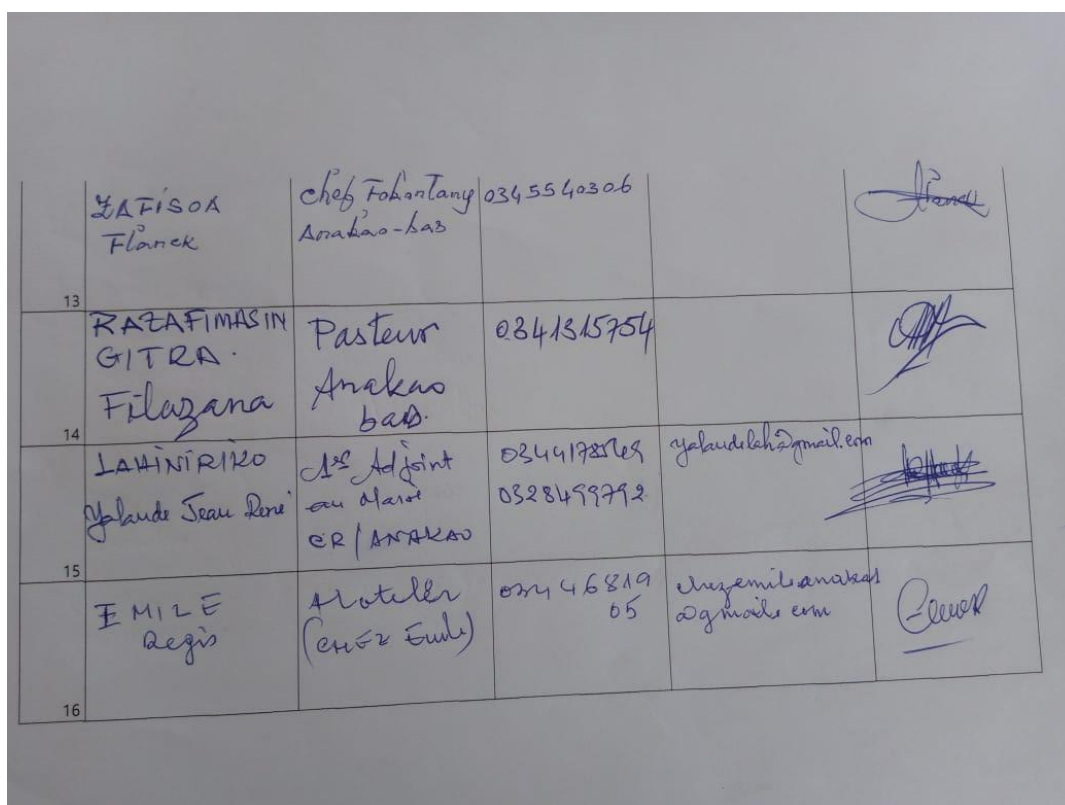 ZAFISOA
Flanek
Chef Fokontany
Anakao-bas
0345540306
13
RAZAFIMASIN
GITRA.
Filazana
Pasteur
Anakao
bas.
0341315754
14
LAHINIRIKO
Yalaude Jean René
1er Adjoint
au Maire
CR/ANAKAO
0328499792
yalaudelah@gmail.com
15
EMILE
Regis
Hotelier
(CHEZ Emile)
034 46819
05
chezemileanakao
@gmail.com
16